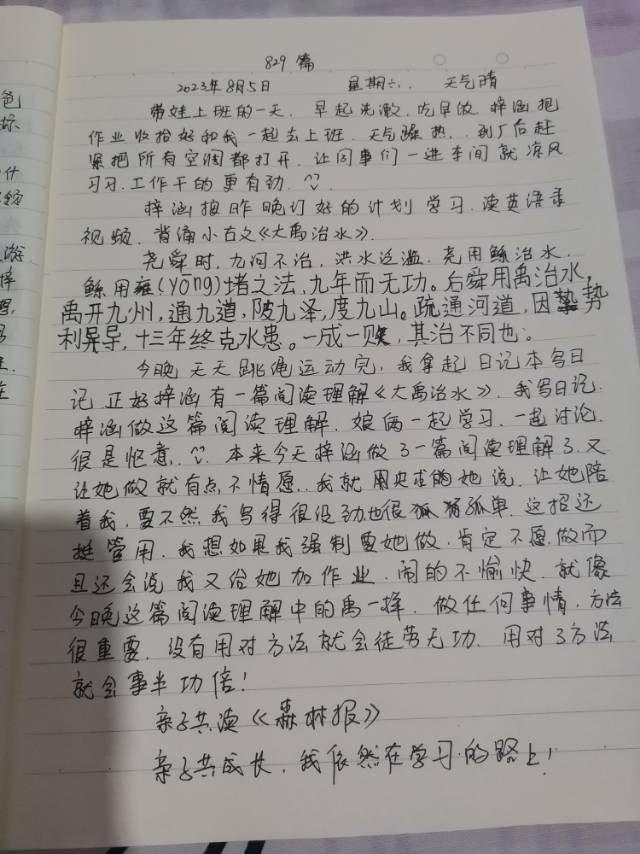 829篇
2023年8月5日 星期六. 天气晴
带娃上班的一天. 早起洗漱. 吃早饭. 梓涵把
作业收拾好和我一起去上班. 天气燥热. 到厂后赶
紧把所有空调都打开. 让同事们一进车间就凉风
习习. 工作干的更有劲.
梓涵按昨晚订好的计划学习. 读英语录
视频. 背诵小古文《大禹治水》.
尧舜时, 九河不治, 洪水泛滥. 尧用鲧治水,
鲧用雍(yōng)堵之法, 九年而无功。后舜用禹治水,
禹开九州, 通九道, 陂九泽, 度九山。疏通河道, 因势
利导, 十三年终克水患。一成一败, 其治不同也。
今晚天天跳绳运动完, 我拿起日记本写日
记. 正好梓涵有一篇阅读理解《大禹治水》. 我写日记.
梓涵做这篇阅读理解. 娘俩一起学习. 一起讨论.
很是惬意. 本来今天梓涵做了一篇阅读理解了. 又
让她做就有点不情愿. 我就用央求的她说. 让她陪
着我, 要不然我写得很没劲也很孤单. 这招还
挺管用. 我想如果我强制要她做. 肯定不愿做而
且还会说我又给她加作业. 闹的不愉快. 就像
今晚这篇阅读理解中的禹一样. 做任何事情, 方法
很重要. 没有用对方法就会徒劳无功. 用对了方法
就会事半功倍!
亲子共读《森林报》
亲子共成长. 我依然在学习的路上!